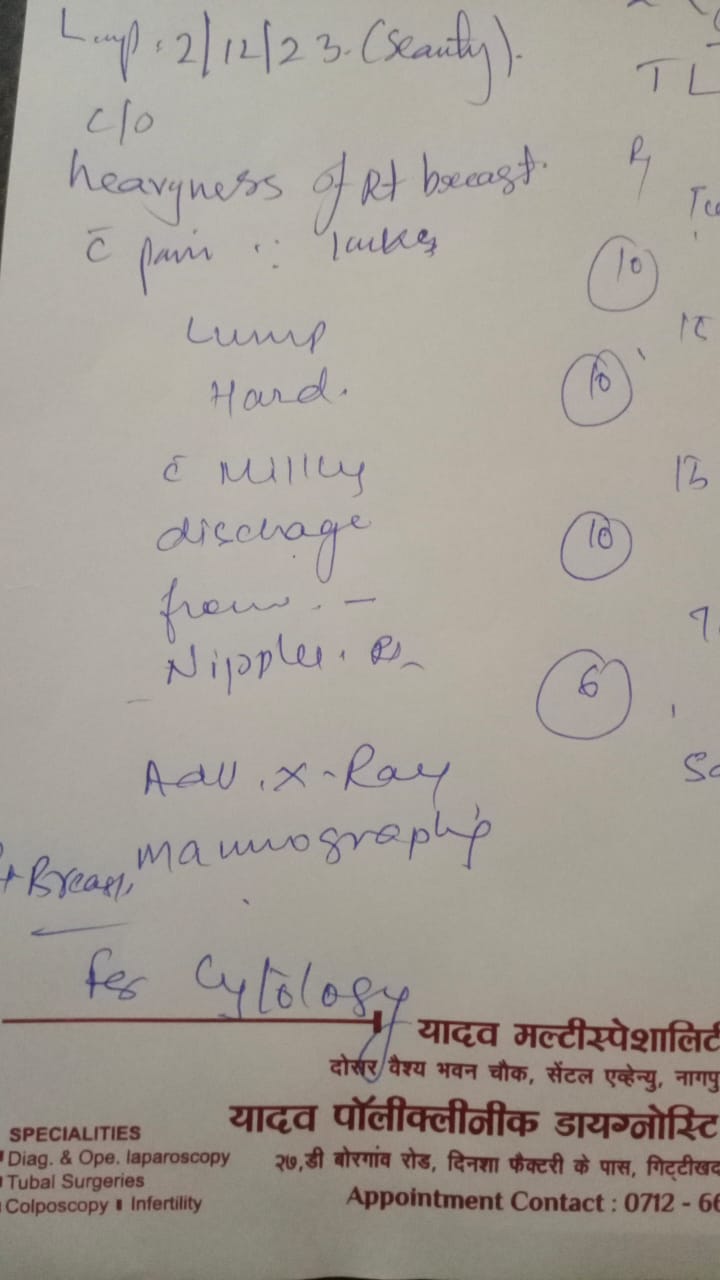 Lmp: 2/12/23. (Scanty).
TL
c/o
heavyness of Rt breast.
c̄ pain ∵
10
Lump
10
Hard.
c̄ Milky
dischage
10
from. –
Nipple.
6
Adv. x-Ray
mammography
Breast,
for Cytology
यादव मल्टीस्पेशालिटि
दोसर वैश्य भवन चौक, सेंटल एव्हेन्यु, नागपु
यादव पॉलीक्लीनीक डायग्नोस्टि
SPECIALITIES
Diag. & Ope. laparoscopy
२७,डी बोरगांव रोड, दिनशा फैक्टरी के पास, गिट्टीखद
Tubal Surgeries
Colposcopy ▮ Infertility
Appointment Contact : 0712 - 66